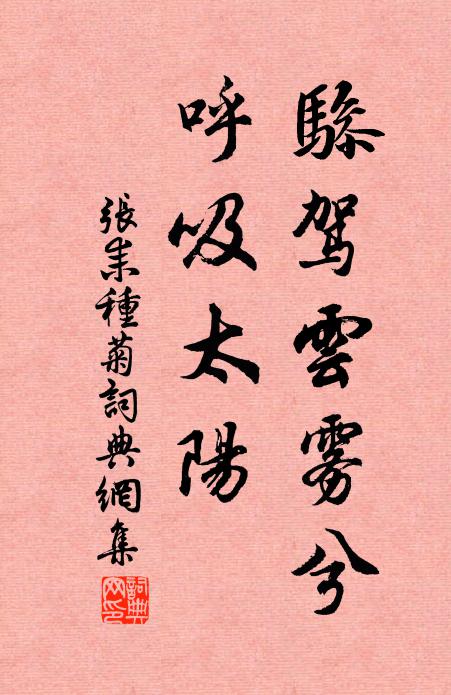 驂駕雲霧兮
呼吸太陽
張耒種菊詞典網集
詞典
网印